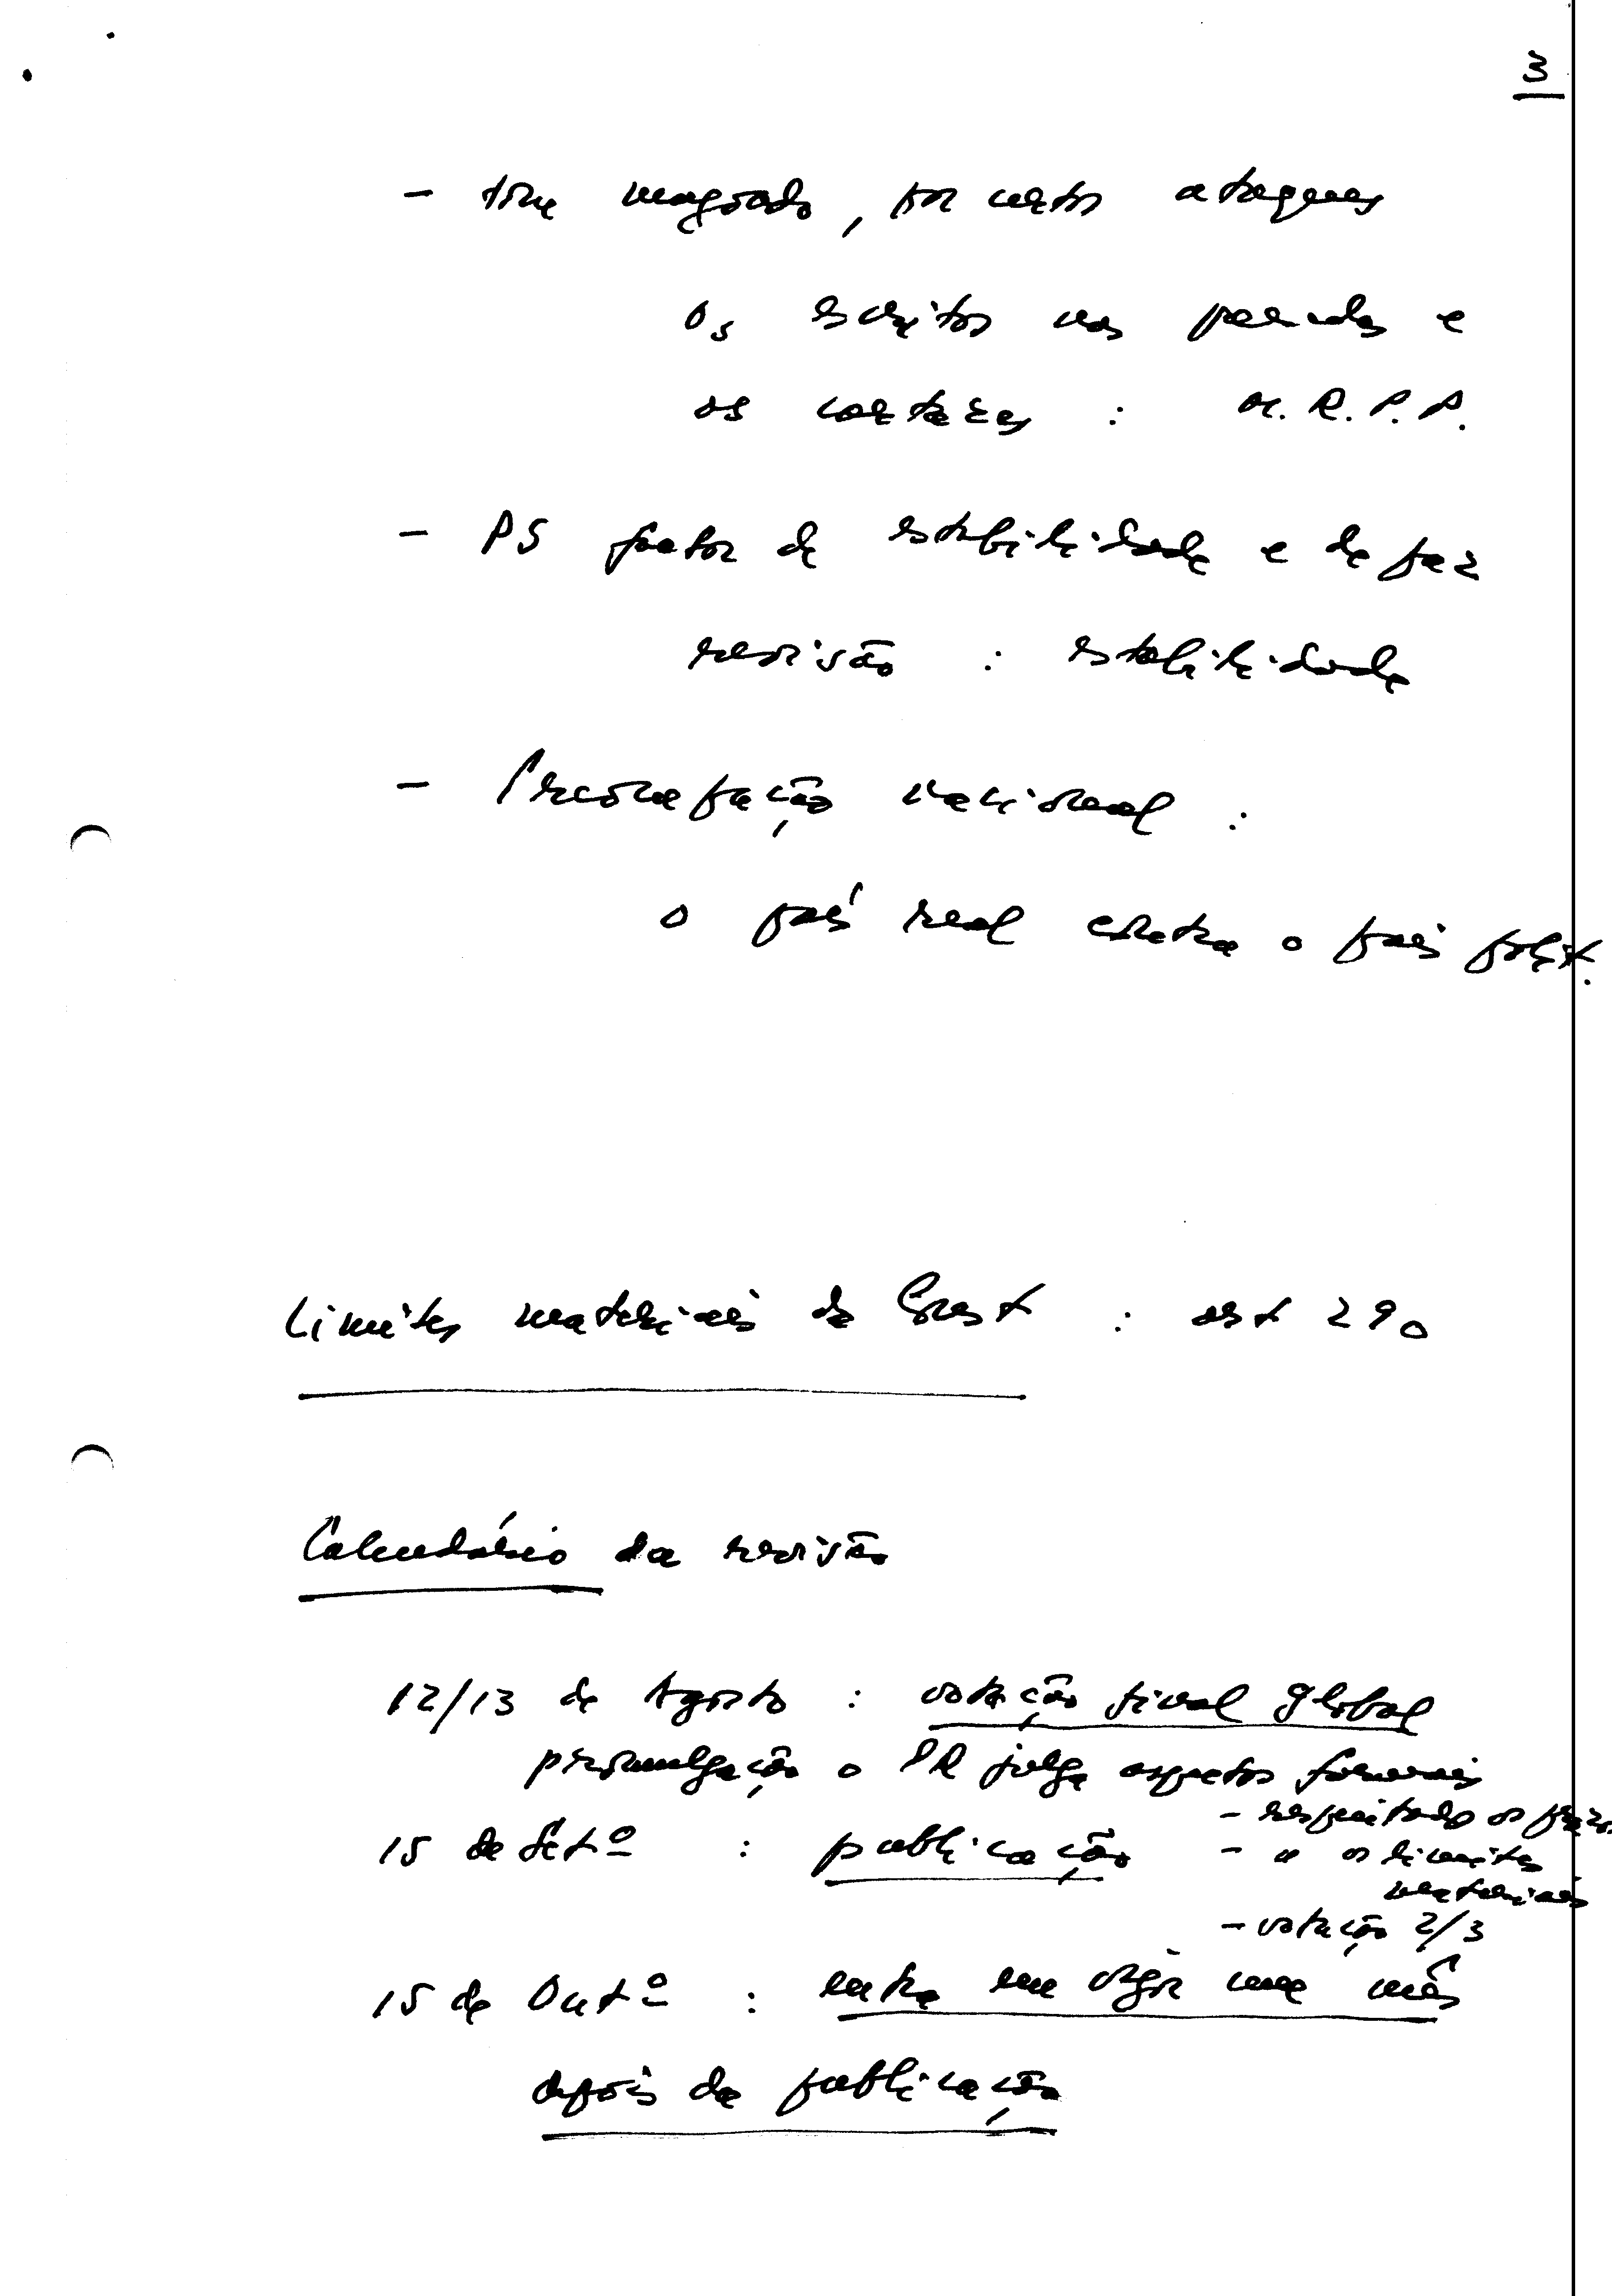 3
- tom magoado, por certos ataques
os escritos nas paredes e
os cartazes : M.R.P.P.
- PS factor de estabilidade e de paz
revisão : estabilidade
- Preocupação nacional :
o país real contra o país polít.
Limites materiais da Const : art 290
Calendário da revisão
12/13 de Agosto : votação final global
promulgação o PR julga aspectos formais
- respeitado os prazos
15 de Setº : publicação - " os limites
materiais
- votação 2/3
15 de Outº : entra em vigor um mês
depois da publicação